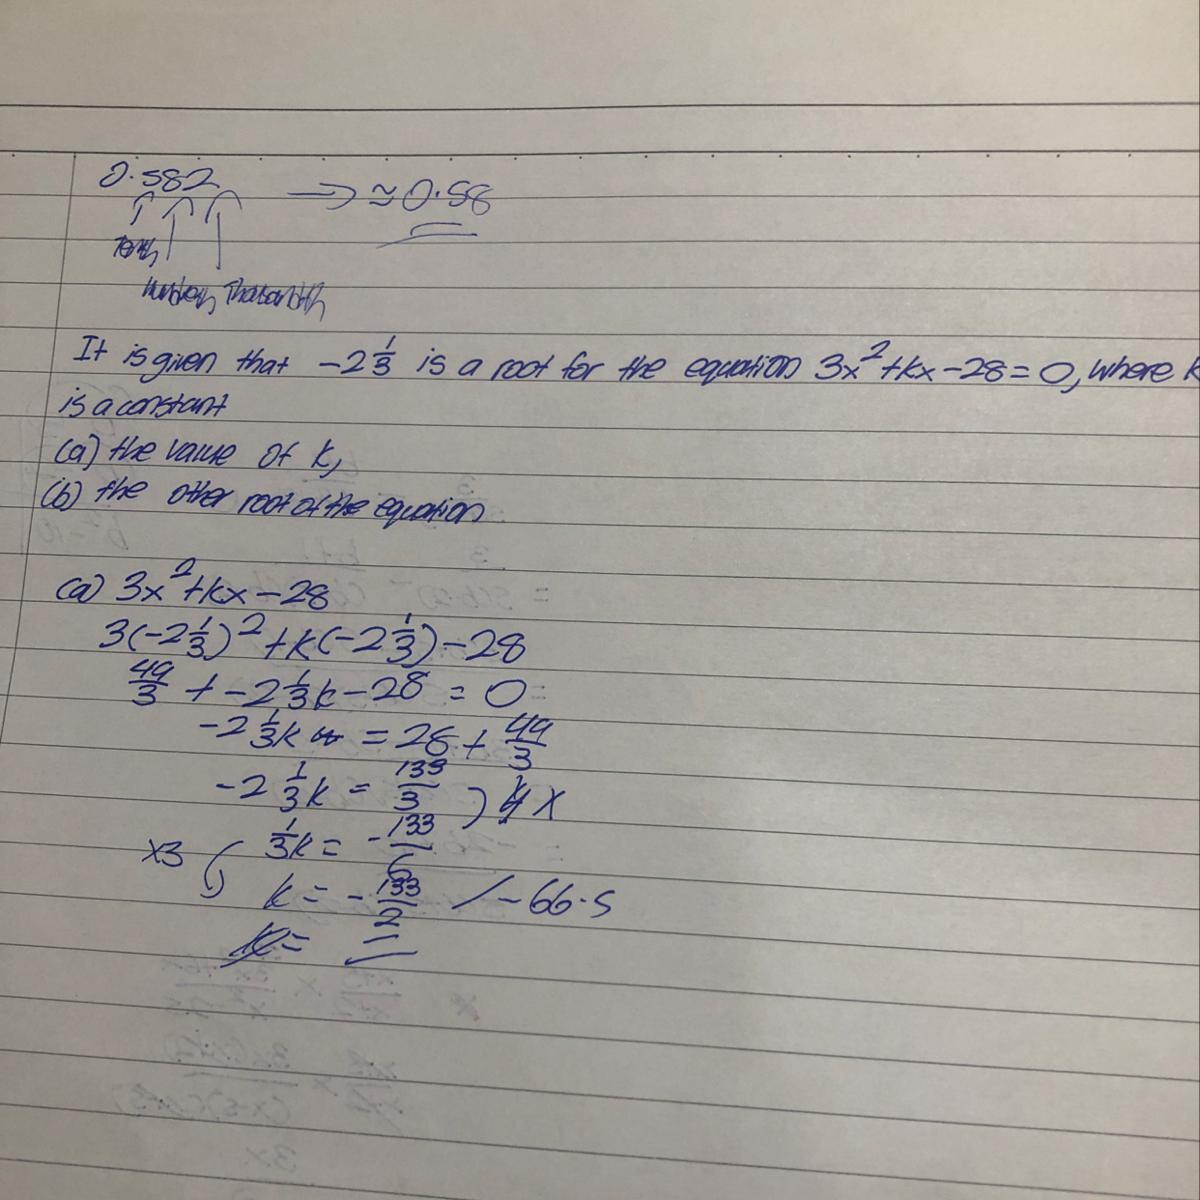 0.582 → ≈ 0.58
Tenth
Hundredth Thousandth
It is given that -2 1/3 is a root for the equation 3x² + kx - 28 = 0, where k
is a constant
(a) the value of k,
(b) the other root of the equation
(a) 3x² + kx - 28
3(-2 1/3)² + k(-2 1/3) - 28
49/3 + -2 1/3 k - 28 = 0
-2 1/3 k = 28 + 49/3
-2 1/3 k = 133/3
1/3 k = -133/6
x3 k = -133/2 / -66.5
k =